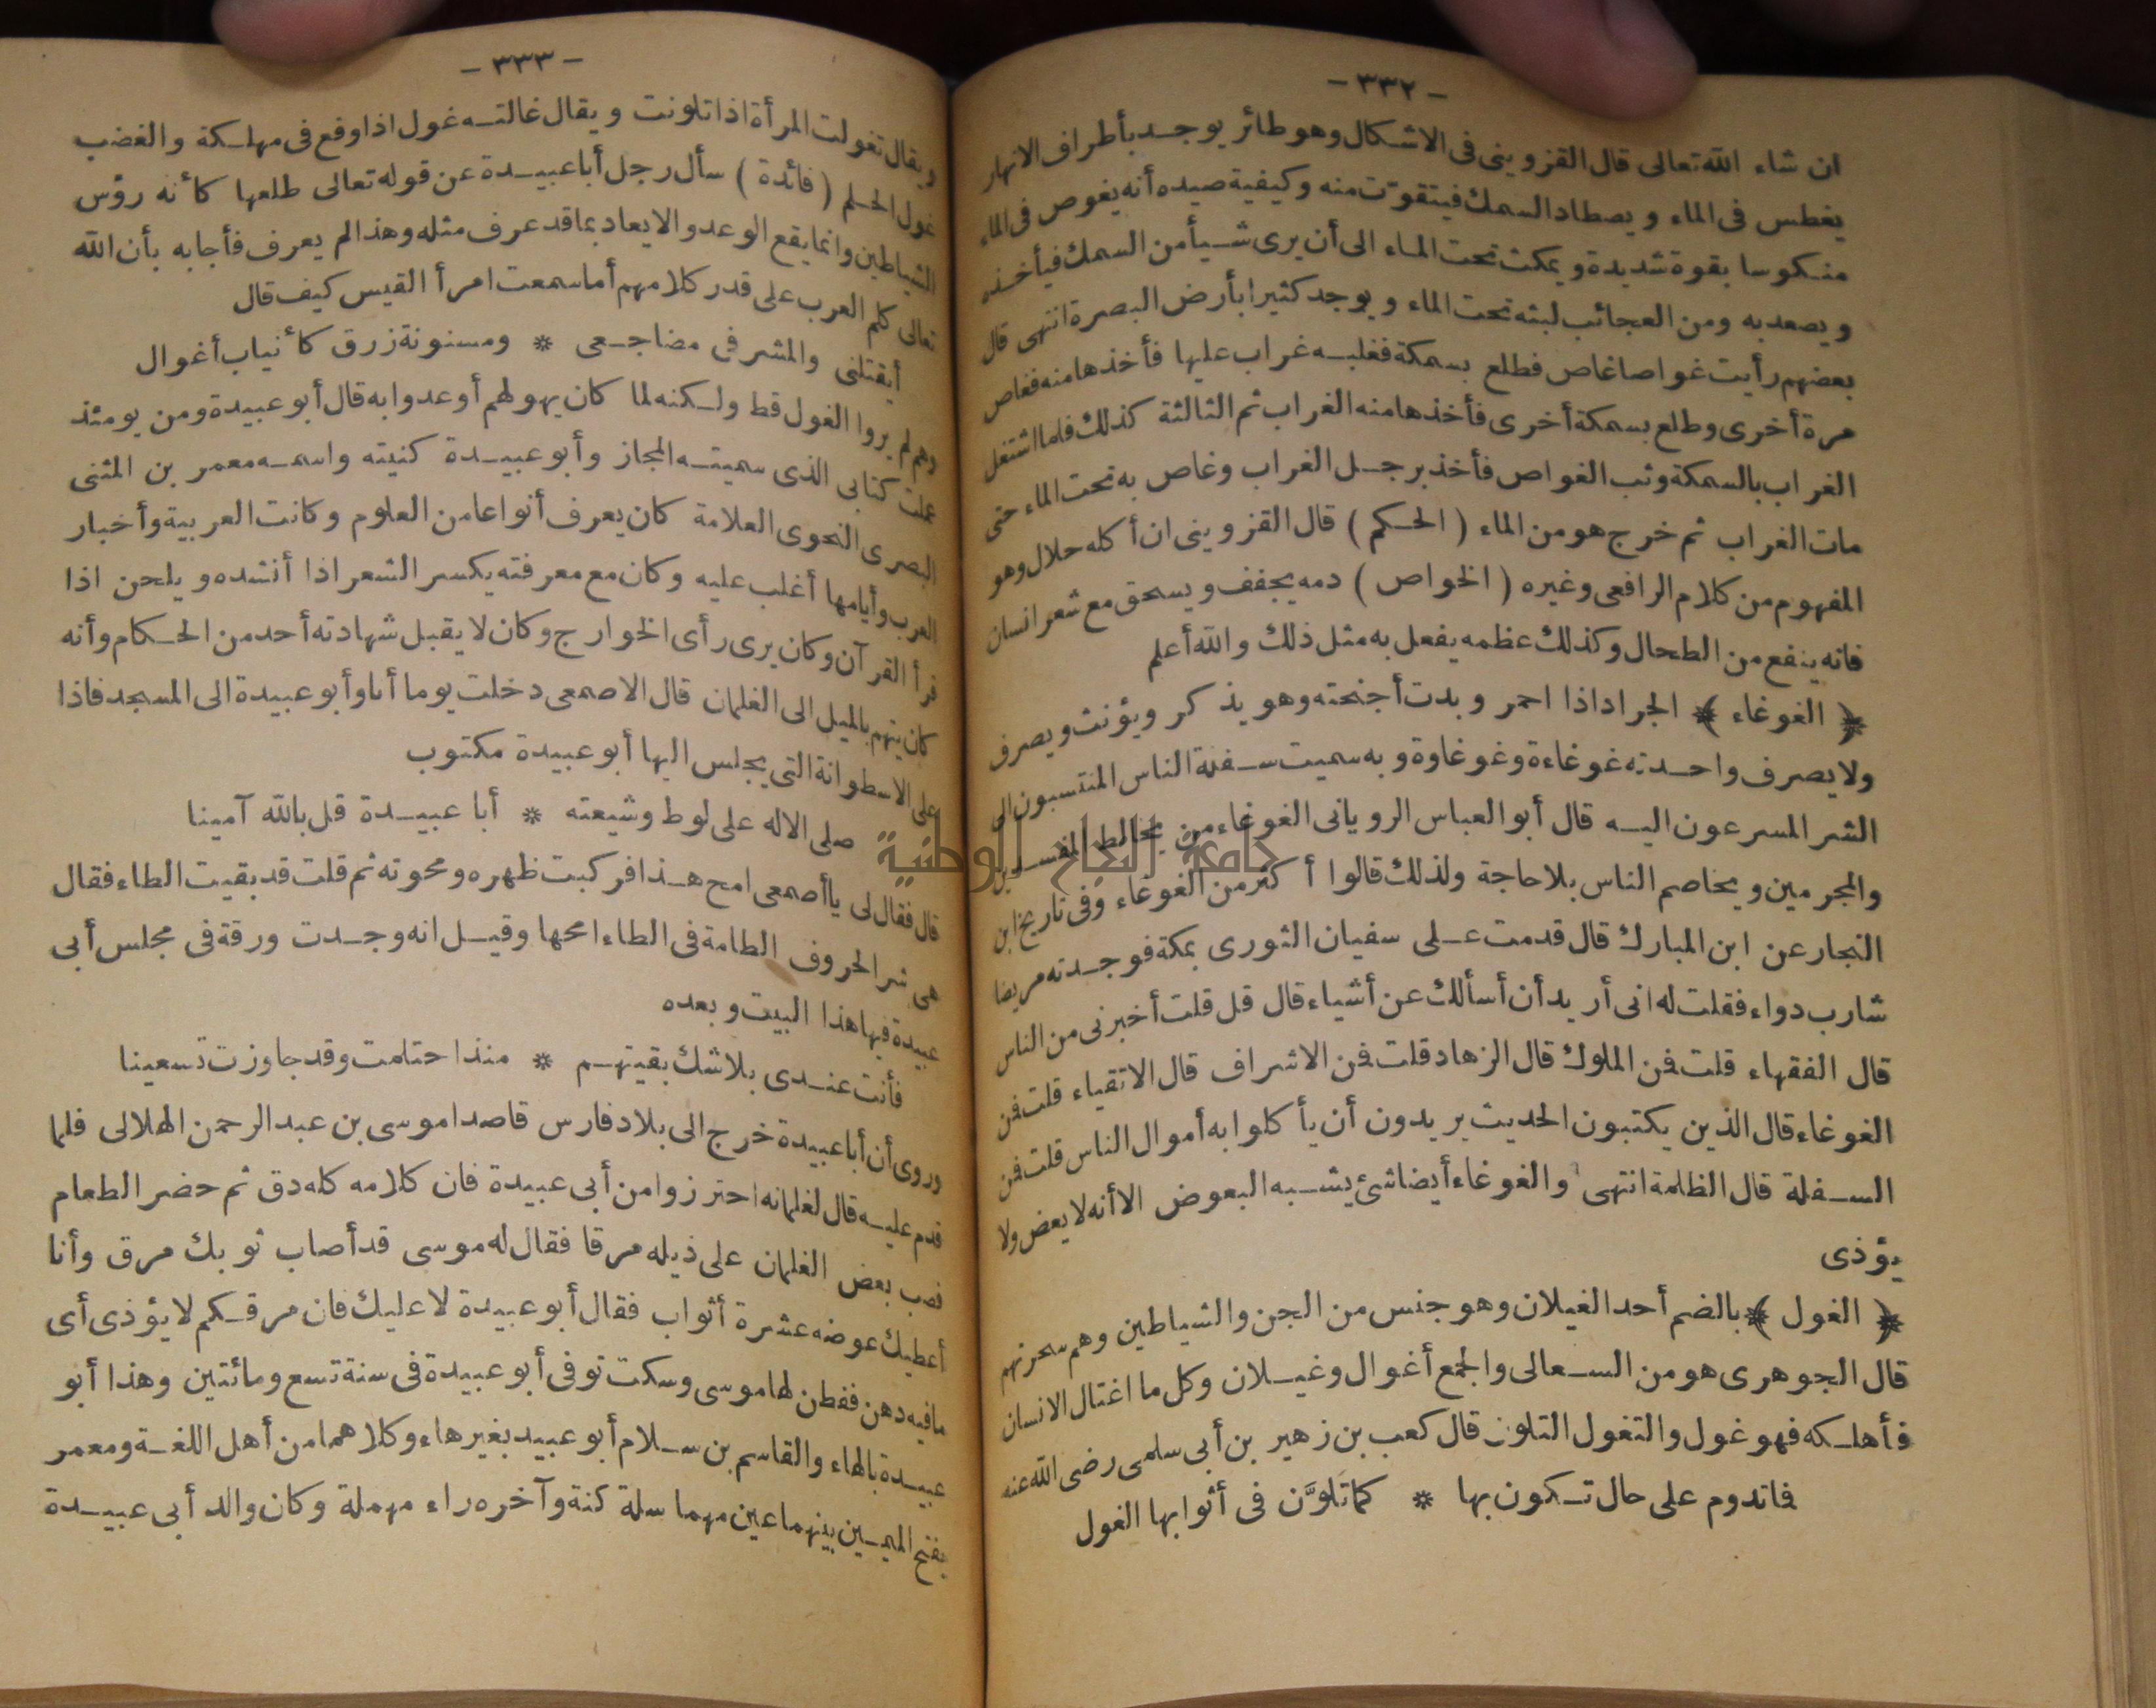 – ٣٣٢ –
ان شاء الله تعالى قال القزوينى فى الاشكال وهو طائر يوجد بأطراف الانهار
يغطس فى الماء ويصطاد السمك فيتقوّت منه وكيفية صيده أنه يغوص فى الماء
منكوسا بقوة شديدة ويمكث تحت الماء الى أن يرى شيأ من السمك فيأخذه
ويصعد به ومن العجائب لبثه تحت الماء ويوجد كثيرا بأرض البصرة انتهى قال
بعضهم رأيت غواصا غاص فطلع بسمكة فغلبه غراب عليها فأخذها منه فغاص
مرة أخرى وطلع بسمكة أخرى فأخذها منه الغراب ثم الثالثة كذلك فلما اشتغل
الغراب بالسمكة وثب الغواص فأخذ برجل الغراب وغاص به تحت الماء حتى
مات الغراب ثم خرج هو من الماء ( الحكم ) قال القزوينى ان أكله حلال وهو
المفهوم من كلام الرافعى وغيره ( الخواص ) دمه يجفف ويسحق مع شعر انسان
فانه ينفع من الطحال وكذلك عظمه يفعل به مثل ذلك والله أعلم
﴿ الغوغاء ﴾ الجراد اذا احمر وبدت أجنحته وهو يذكر ويؤنث ويصرف
ولا يصرف واحدته غوغاءة وغوغاوة وبه سميت سفلة الناس المنتسبون الى
الشر المسرعون اليه قال أبو العباس الرويانى الغوغاء من يخالط المفسدين
والمجرمين ويخاصم الناس بلا حاجة ولذلك قالوا أكثر من الغوغاء وفى تاريخ ابن
النجار عن ابن المبارك قال قدمت على سفيان الثورى بمكة فوجدته مريضا
شارب دواء فقلت له انى أريد أن أسألك عن أشياء قال قل قلت أخبرنى من الناس
قال الفقهاء قلت فمن الملوك قال الزهاد قلت فمن الاشراف قال الاتقياء قلت فمن
الغوغاء قال الذين يكتبون الحديث يريدون أن يأكلوا به أموال الناس قلت فمن
السفلة قال الظلمة انتهى والغوغاء أيضا شئ يشبه البعوض الا أنه لا يعض ولا
يؤذى
﴿ الغول ﴾ بالضم أحد الغيلان وهو جنس من الجن والشياطين وهم سحرتهم
قال الجوهرى هو من السعالى والجمع أغوال وغيلان وكل ما اغتال الانسان
فأهلكه فهو غول والتغول التلون قال كعب بن زهير بن أبى سلمى رضى الله عنه
فما تدوم على حال تكون بها * كما تَلوَّن فى أثوابها الغول
– ٣٣٣ –
ويقال تغولت المرأة اذا تلونت ويقال غالته غول اذا وقع فى مهلكة والغضب
غول الحلم ( فائدة ) سأل رجل أبا عبيدة عن قوله تعالى طلعها كأنه رؤس
الشياطين وانما يقع الوعد والايعاد بما قد عرف مثله وهذا لم يعرف فأجابه بأن الله
تعالى كلم العرب على قدر كلامهم أما سمعت امرأ القيس كيف قال
أيقتلنى والمشرفى مضاجعى * ومسنونة زرق كأنياب أغوال
وهم لم يروا الغول قط ولكنه لما كان يهولهم أوعدوا به قال أبو عبيدة ومن يومئذ
عملت كتابى الذى سميته المجاز وأبو عبيدة كنيته واسمه معمر بن المثنى
البصرى النحوى العلامة كان يعرف أنواعا من العلوم وكانت العربية وأخبار
العرب وأيامها أغلب عليه وكان مع معرفته يكسر الشعر اذا أنشده ويلحن اذا
قرأ القرآن وكان يرى رأى الخوارج وكان لا يقبل شهادته أحد من الحكام وأنه
كان يتهم بالميل الى الغلمان قال الاصمعى دخلت يوما أنا وأبو عبيدة الى المسجد فاذا
على الاسطوانة التى يجلس اليها أبو عبيدة مكتوب
صلى الاله على لوط وشيعته * أبا عبيدة قل بالله آمينا
قال فقال لى يا أصمعى امح هذا فركبت ظهره ومحوته ثم قلت قد بقيت الطاء فقال
هى شر الحروف الطامة فى الطاء امحها وقيل انه وجدت ورقة فى مجلس أبى
عبيدة فيها هذا البيت وبعده
فأنت عندى بلا شك بقيتهم * منذ احتلمت وقد جاوزت تسعينا
وروى أن أبا عبيدة خرج الى بلاد فارس قاصدا موسى بن عبد الرحمن الهلالى فلما
قدم عليه قال لغلمانه احترزوا من أبى عبيدة فان كلامه كله دق ثم حضر الطعام
فصب بعض الغلمان على ذيله مرقا فقال له موسى قد أصاب ثوبك مرق وأنا
أعطيك عوضه عشرة أثواب فقال أبو عبيدة لا عليك فان مرقكم لا يؤذى أى
ما فيه دهن ففطن لها موسى وسكت توفى أبو عبيدة فى سنة تسع ومائتين وهذا أبو
عبيدة بالهاء والقاسم بن سلام أبو عبيد بغير هاء وكلاهما من أهل اللغة ومعمر
بفتح الميمين بينهما عين مهملة ساكنة وآخره راء مهملة وكان والد أبى عبيدة
جامعة النجاح الوطنية